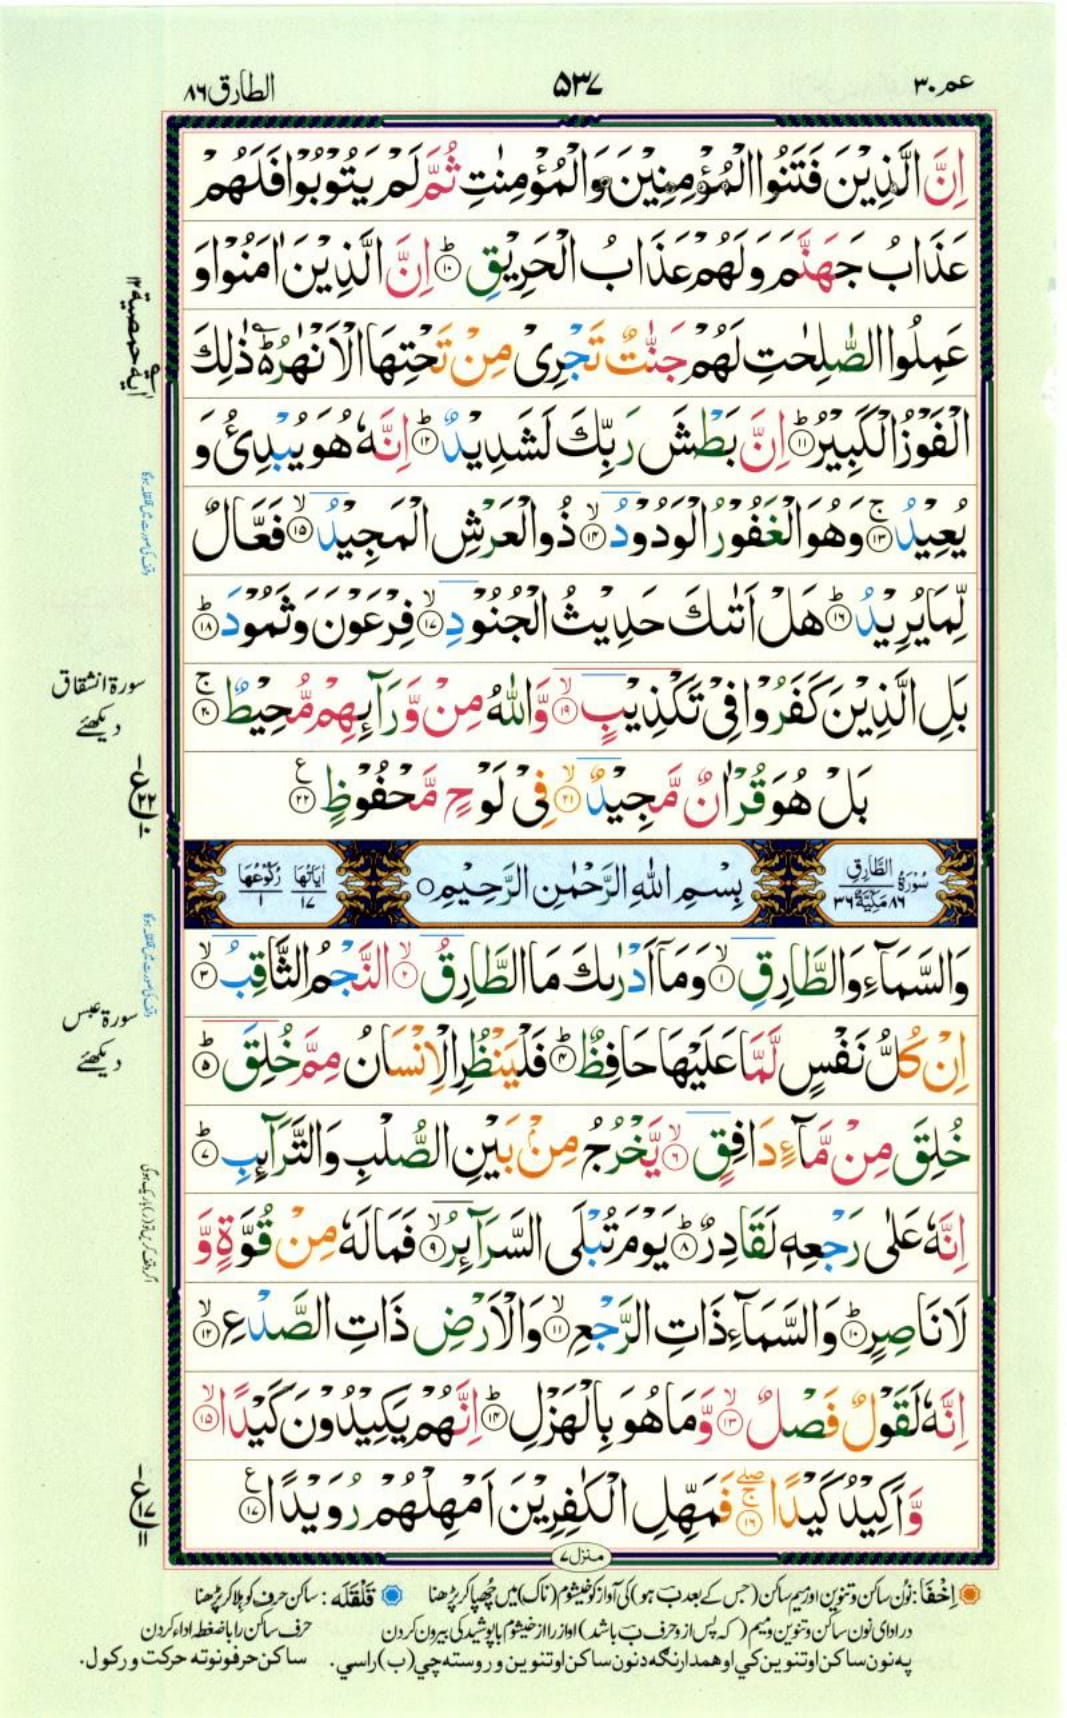 عم ۳۰
۵۳۷
الطارق ۸۶
اِنَّ الَّذِيْنَ فَتَنُوا الْمُؤْمِنِيْنَ وَالْمُؤْمِنٰتِ ثُمَّ لَمْ يَتُوْبُوْا فَلَهُمْ
عَذَابُ جَهَنَّمَ وَلَهُمْ عَذَابُ الْحَرِيْقِ ؕ۱۰ اِنَّ الَّذِيْنَ اٰمَنُوْا وَ
عَمِلُوا الصّٰلِحٰتِ لَهُمْ جَنّٰتٌ تَجْرِىْ مِنْ تَحْتِهَا الْاَنْهٰرُ ؕ ذٰلِكَ
الْفَوْزُ الْكَبِيْرُ ؕ۱۱ اِنَّ بَطْشَ رَبِّكَ لَشَدِيْدٌ ؕ۱۲ اِنَّهٗ هُوَ يُبْدِئُ وَ
يُعِيْدُ ۚ۱۳ وَهُوَ الْغَفُوْرُ الْوَدُوْدُ ۙ۱۴ ذُو الْعَرْشِ الْمَجِيْدُ ۙ۱۵ فَعَّالٌ
لِّمَا يُرِيْدُ ؕ۱۶ هَلْ اَتٰىكَ حَدِيْثُ الْجُنُوْدِ ۙ۱۷ فِرْعَوْنَ وَثَمُوْدَ ؕ۱۸
بَلِ الَّذِيْنَ كَفَرُوْا فِىْ تَكْذِيْبٍ ۙ۱۹ وَّاللّٰهُ مِنْ وَّرَآئِهِمْ مُّحِيْطٌ ۚ۲۰
بَلْ هُوَ قُرْاٰنٌ مَّجِيْدٌ ۙ۲۱ فِىْ لَوْحٍ مَّحْفُوْظٍ ۲۲ ع
سُوْرَةُ الطَّارِقِ ۸۶ مَكِّيَّةٌ ۳۶
بِسْمِ اللّٰهِ الرَّحْمٰنِ الرَّحِيْمِ ○
اٰيَاتُهَا ۱۷ رُكُوْعُهَا ۱
وَالسَّمَآءِ وَالطَّارِقِ ۙ۱ وَمَاۤ اَدْرٰىكَ مَا الطَّارِقُ ۙ۲ النَّجْمُ الثَّاقِبُ ۙ۳
اِنْ كُلُّ نَفْسٍ لَّمَّا عَلَيْهَا حَافِظٌ ؕ۴ فَلْيَنْظُرِ الْاِنْسَانُ مِمَّ خُلِقَ ؕ۵
خُلِقَ مِنْ مَّآءٍ دَافِقٍ ۙ۶ يَّخْرُجُ مِنْۢ بَيْنِ الصُّلْبِ وَالتَّرَآئِبِ ؕ۷
اِنَّهٗ عَلٰى رَجْعِهٖ لَقَادِرٌ ؕ۸ يَوْمَ تُبْلَى السَّرَآئِرُ ۙ۹ فَمَا لَهٗ مِنْ قُوَّةٍ وَّ
لَا نَاصِرٍ ؕ۱۰ وَالسَّمَآءِ ذَاتِ الرَّجْعِ ۙ۱۱ وَالْاَرْضِ ذَاتِ الصَّدْعِ ۙ۱۲
اِنَّهٗ لَقَوْلٌ فَصْلٌ ۙ۱۳ وَّمَا هُوَ بِالْهَزْلِ ؕ۱۴ اِنَّهُمْ يَكِيْدُوْنَ كَيْدًا ۙ۱۵
وَّاَكِيْدُ كَيْدًا ۚۖ۱۶ فَمَهِّلِ الْكٰفِرِيْنَ اَمْهِلْهُمْ رُوَيْدًا ۱۷ ع
منزل ۷
سورة انشقاق
دیکھئے
سورة عبس
دیکھئے
اِخْفَا: نُون ساکن و تنوین اور میم ساکن (جس کے بعد ب ہو) کی آواز کو خیشوم (ناک) میں چھپا کر پڑھنا قَلْقَلَه: ساکن حرف کو ہلا کر پڑھنا
در ادای نون ساکن و تنوین و میم (که پس از و حرف ب باشد) اواز را از خیشوم با پوشیدگی بیرون کردن حرف ساکن را با ضغطه اداء کردن
په نون ساکن او تنوین کي او همدارنګه د نون ساکن او تنوین وروسته چي (ب) راسي. ساکن حرفونو ته حرکت ورکول.